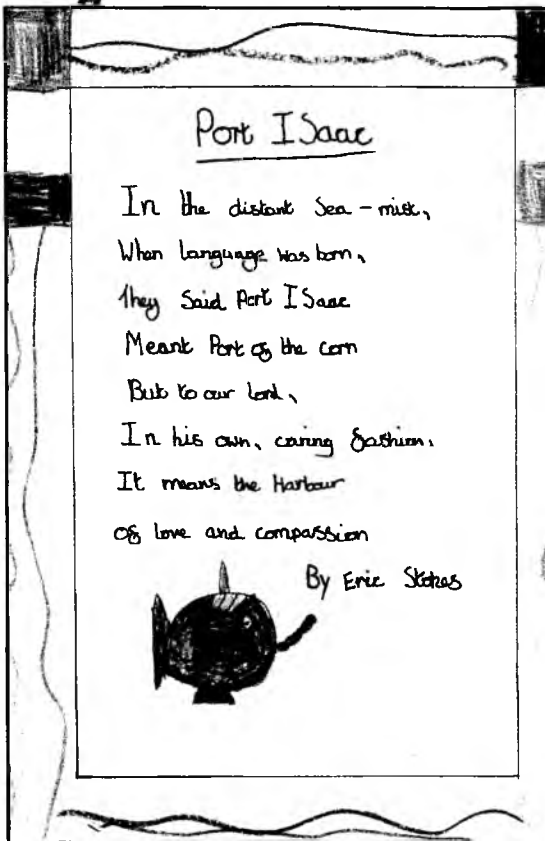 Port ISaac
In the distant Sea - mist,
When language was born,
They Said Port ISaac
Meant Port of the corn
But to our Lord,
In his own, caring fashion.
It means the Harbour
of love and compassion
By Eric Stokes